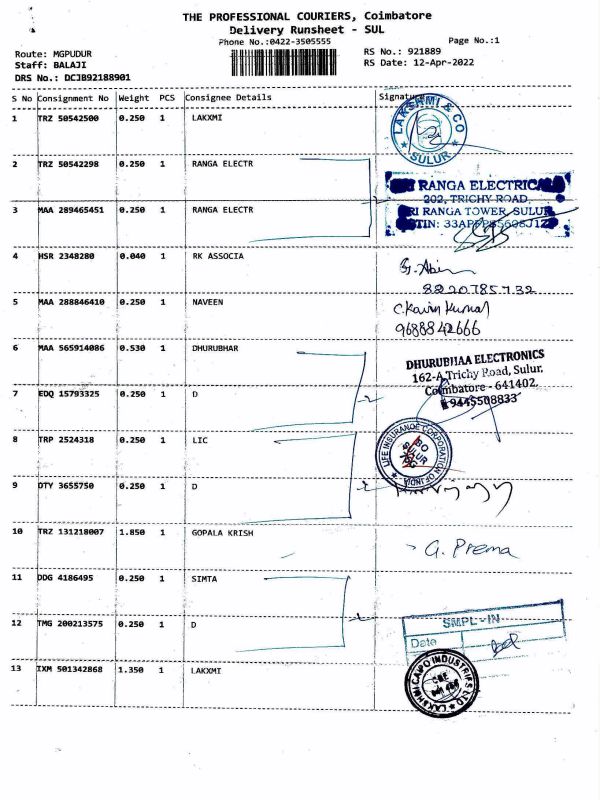 THE PROFESSIONAL COURIERS, Coimbatore
Delivery Runsheet - SUL
Phone No.:0422-3505555
Page No.:1
Route: MGPUDUR
RS No.: 921889
Staff: BALAJI
RS Date: 12-Apr-2022
DRS No.: DCJB92188901
S No Consignment No Weight PCS Consignee Details Signature
1 TRZ 50542500 0.250 1 LAKXMI
LAKSHMI & CO
SULUR
2 TRZ 50542298 0.250 1 RANGA ELECTR
RANGA ELECTRICALS
202, TRICHY ROAD,
3 MAA 289465451 0.250 1 RANGA ELECTR
SRI RANGA TOWER, SULUR
4 HSR 2348280 0.040 1 RK ASSOCIA
5 MAA 288846410 0.250 1 NAVEEN
C.Kavin Kumar
9688842666
6 MAA 565914086 0.530 1 DHURUBHAR
DHURUBHAA ELECTRONICS
162-A,Trichy Road, Sulur,
Coimbatore - 641402.
9445508833
7 EDQ 15793325 0.250 1 D
8 TRP 2524318 0.250 1 LIC
LIFE INSURANCE CORPORATION OF INDIA
BO
SULUR
9 DTY 3655750 0.250 1 D
10 TRZ 131218007 1.850 1 GOPALA KRISH
G. Prema
11 DDG 4186495 0.250 1 SIMTA
12 TMG 200213575 0.250 1 D
SMPL-IN
Date
13 IXM 501342868 1.350 1 LAKXMI
LAKSHMI CAIPO INDUSTRIES LTD